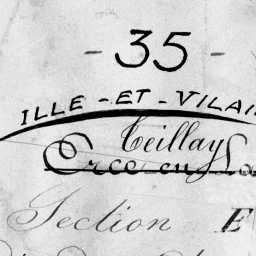 - 35 -
ILLE - ET - VILAI
Teillay
Ercé en La
Section E